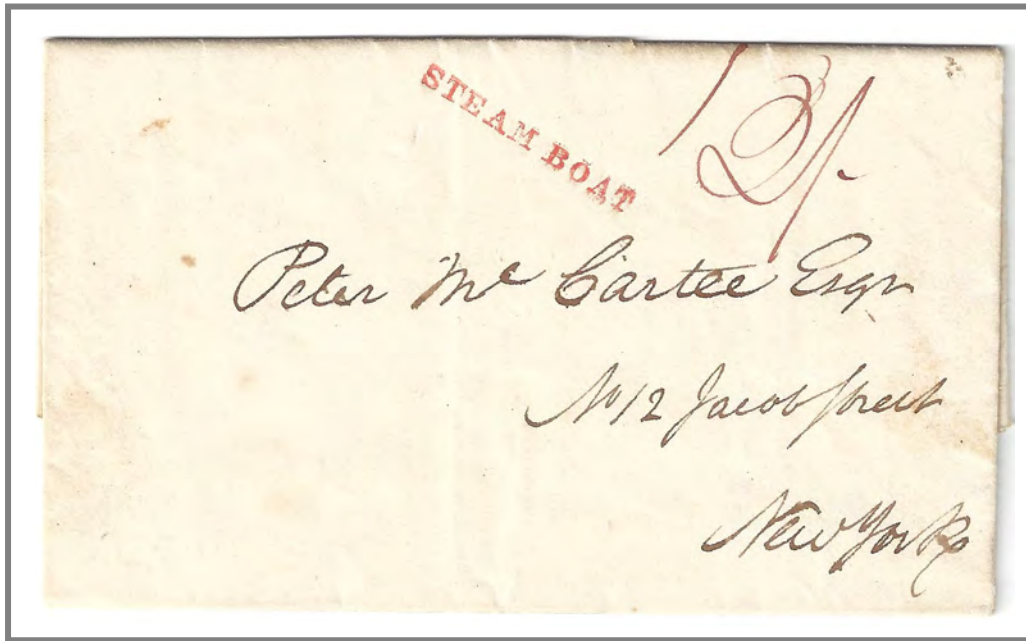 STEAM BOAT
Peter Mc Cartee Esqr
No 12 Jacob Street
New York